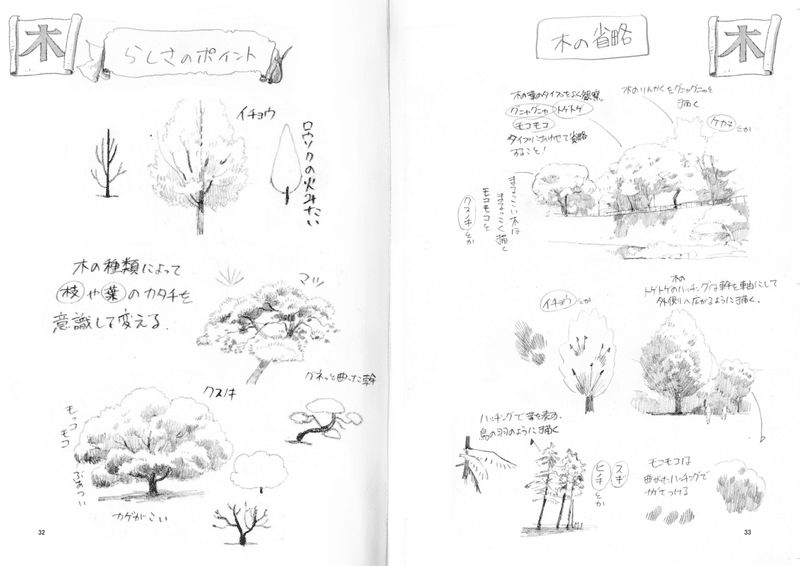 木
らしさのポイント
イチョウ
ロウソクの火みたい
木の種類によって
枝や葉のカタチを
意識して変える.
マツ
グネっと曲った幹
クスノキ
モッコ
モコ
ぶあつい
カゲがこい
32
木の省略
木
木の葉のタイプをよく観察。
グニャグニャ トゲトゲ
モコモコ
タイプにあわせて省略
すること!
木のりんかくをグニャグニャと
描く
ケヤキとか
まるっこい木は
まるっこく描く
モコモコと
クスノキとか
木の
トゲトゲのハッチングは幹を軸にして
外側へ広がるように描く.
イチョウとか
ハッチングで葉を表す.
鳥の羽のように描く
スギ
ヒノキとか
モコモコは
曲がったハッチングで
カゲをつける
33